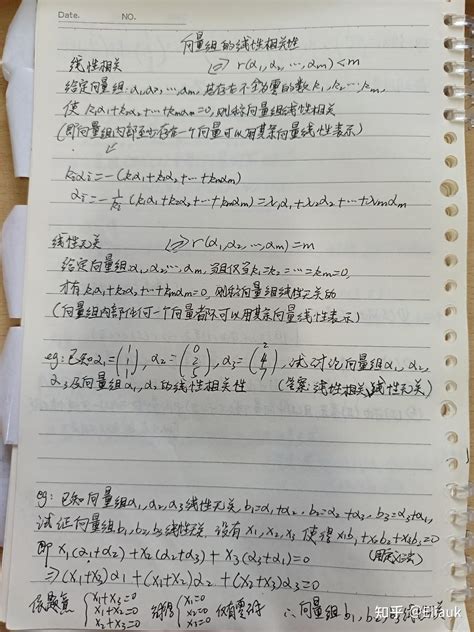 Date. NO.
向量组的线性相关性
线性相关 ⇔ r(α₁,α₂,…,αm)<m
给定向量组:α₁,α₂,…,αm,若存在不全为零的数k₁,k₂…km,
使 k₁α₁+k₂α₂+…+kmαm=0,则称向量组线性相关
(即向量组内部至少存在一个向量可以用其余向量线性表示)
kiαi=-(k₁α₁+k₂α₂+…+kmαm)
αi=-1/ki(k₁α₁+k₂α₂+…+kmαm)=λ₁α₁+λ₂α₂+…+λmαm
线性无关 ⇔ r(α₁,α₂,…,αm)=m
给定向量组:α₁,α₂,…,αm,当且仅当k₁=k₂=…=km=0,
才有k₁α₁+k₂α₂+…+kmαm=0,则称向量组线性无关
(向量组内部任何一个向量都不可以用其余向量线性表示)
eg:已知α₁=(1 1 1),α₂=(0 2 5),α₃=(2 4 7),试讨论向量组α₁,α₂,
α₃及向量组α₁,α₂的线性相关性 (答案:线性相关,线性无关)
eg:已知向量组α₁,α₂,α₃线性无关,b₁=α₁+α₂,b₂=α₂+α₃,b₃=α₃+α₁,
试证向量组b₁,b₂,b₃线性无关 设有x₁,x₂,x₃使得x₁b₁+x₂b₂+x₃b₃=0
即 x₁(α₁+α₂)+x₂(α₂+α₃)+x₃(α₃+α₁)=0
⇒(x₁+x₃)α₁+(x₁+x₂)α₂+(x₂+x₃)α₃=0
x₁+x₃=0 x₁+x₂=0 x₂+x₃=0 x₁=0 x₂=0 x₃=0 仅有零解 ∴向量组b₁,b₂,b₃
知乎 @Elfauk